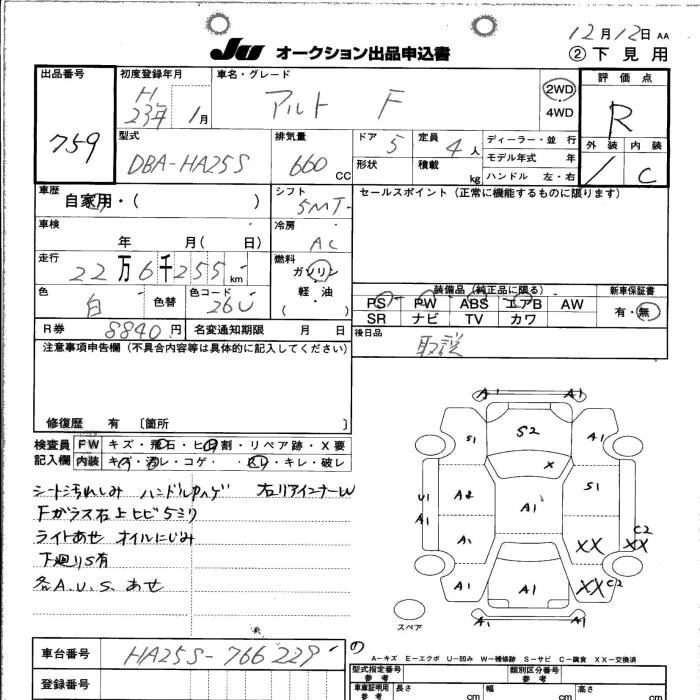 12月12日 AA
JU オークション出品申込書 ②下見用
出品番号 759
初度登録年月 H 23年 1月
車名・グレード アルト F
2WD
4WD
評価点 R
型式 DBA-HA25S
排気量 660 CC
ドア 5
定員 4人
ディーラー・並行
モデル年式 年
ハンドル 左・右
形状
積載 kg
外装 /
内装 C
車歴 自家用・( )
シフト 5MT
セールスポイント(正常に機能するものに限ります)
車検 年 月( 日)
冷房 AC
走行 22万6千255km
燃料 ガソリン
軽・油
( )
色 白
色替
色コード 26U
装備品(純正品に限る)
PS PW ABS エアB AW
SR ナビ TV カワ
新車保証書
有・無
R券 8840円
名変通知期限 月 日
後日品 取説
注意事項申告欄(不具合内容等は具体的に記入してください)
修復歴 有 〔箇所 〕
検査員 FW キズ・飛石・ヒビ割・リペア跡・X要
記入欄 内装 キズ・汚レ・コゲ・ ・キレ・破レ
シート汚れしみ ハンドルPハゲ 右リアインナーW
Fガラス右上ヒビ5ミリ
ライトあせ オイルにじみ
下廻りS有
各A.U.S.あせ
A1 A1
S1 S2 A1
X
U1 A2 A1 S1
A1
A1 XX XX C2
A1 A1 XX C2
A1 A1
スペア
A-キズ E-エクボ U-凹み W-補修跡 S-サビ C-腐食 XX-交換済
車台番号 HA25S-766229
登録番号
型式指定番号 参考
類別区分番号 参考
車庫証明用 参考 長さ cm 幅 cm 高さ cm